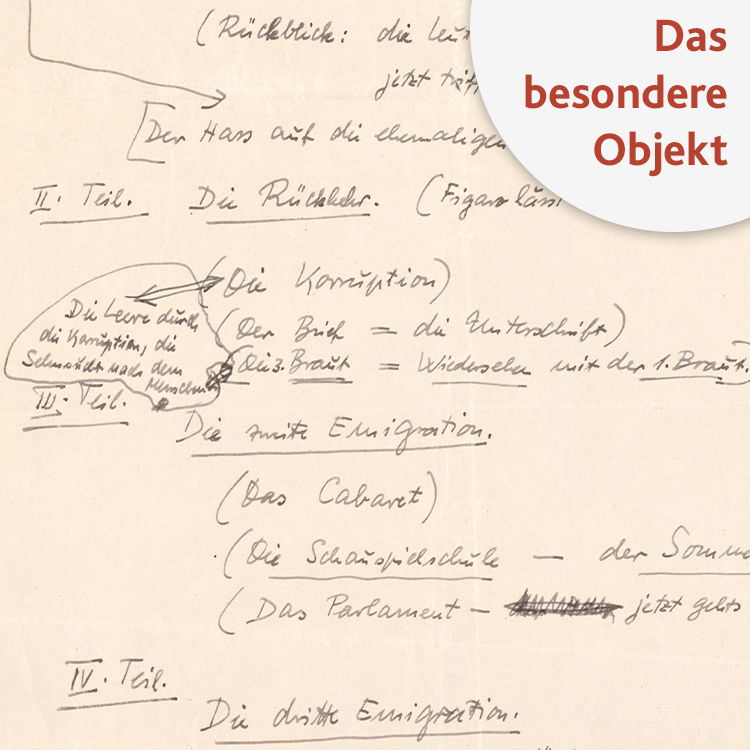 Das
besondere
Objekt
(Rückblick: die
jetzt
[Der Hass auf die ehemaligen
II. Teil. Die Rückkehr. (Figaro lässt
(Die Korruption)
Die Leere durch
die Korruption, die
Sehnsucht nach dem
Menschen
(Der Brief = die Unterschrift)
(Die 3. Braut = Wiedersehn mit der 1. Braut.)
III. Teil.
Die zweite Emigration.
(Das Cabaret)
(Die Schauspielschule — der Somme
(Das Parlament — jetzt gehts
IV. Teil.
Die dritte Emigration.